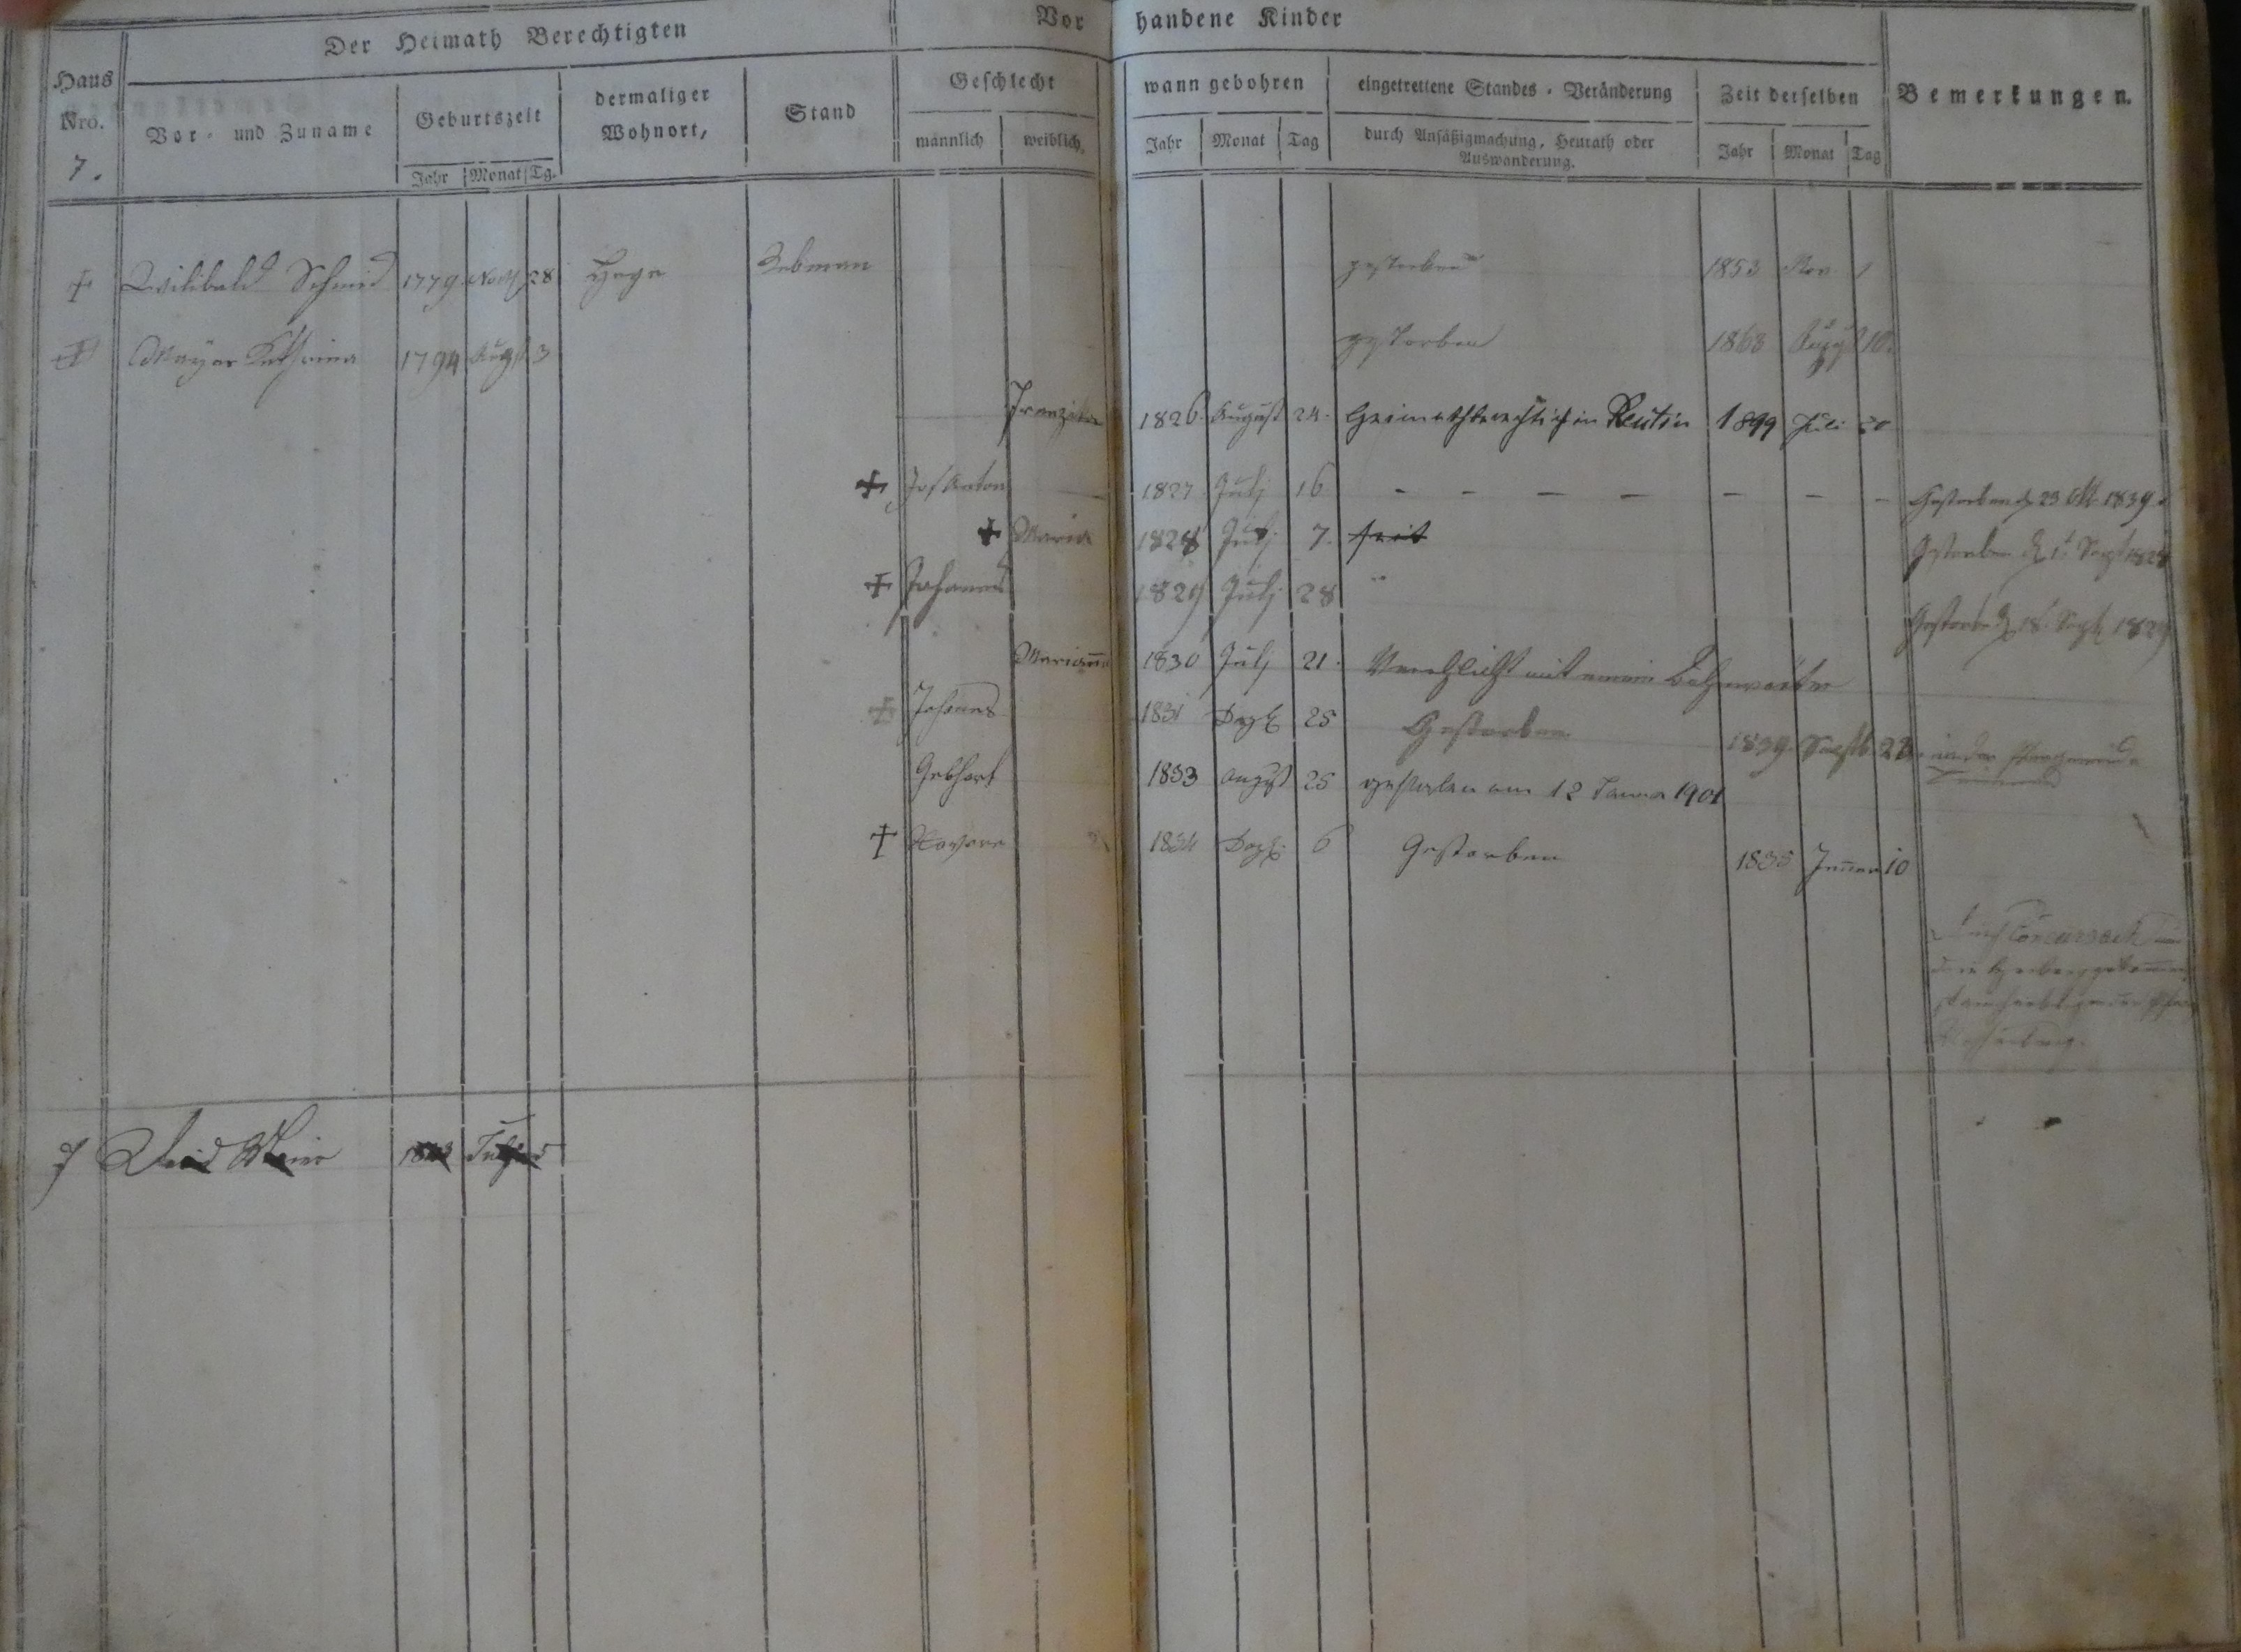 Der Heimath Berechtigten
Vorhandene Kinder
Haus Nro.
7.
Vor- und Zuname
Geburtszeit
Jahr Monat Tg.
dermaliger Wohnort,
Stand
Geschlecht
männlich weiblich.
wann gebohren
Jahr Monat Tag
eingetrettene Standes-Veränderung
durch Ansäßigmachung, Heurath oder
Auswanderung.
Zeit derselben
Jahr Monat Tag
Bemerkungen.
+ Wilibald Schmid 1779 28 Hege Rebman gestorben 1853 Nov 1
Mayer Kathrina 1794 Augst 3 gestorben 1868 August 10.
Franziska 1826. August 24. Heimathberechtigt in Reutin 1899 Juli 20
+ Jos Anton 1827 Julj 16 - - - - - - - Gestorben d 23 Okt 1839.
+ Maria 1828 Julj 7. Gestorben d 1t Sept 1828
+ Johannes 1829 Julj 28 " Gestorben d 18t Sept 1829
Mariana 1830 Julj 21. Verehlicht mit einem Bahnwärter
+ Johannes 1831 Dezb 25 Gestorben 1839. Septb in der
Gebhart 1833 August 25 gestorben am 12 Januar 1901
+ 1834 Dezb. 6 Gestorben 1835 Jenner 10
7